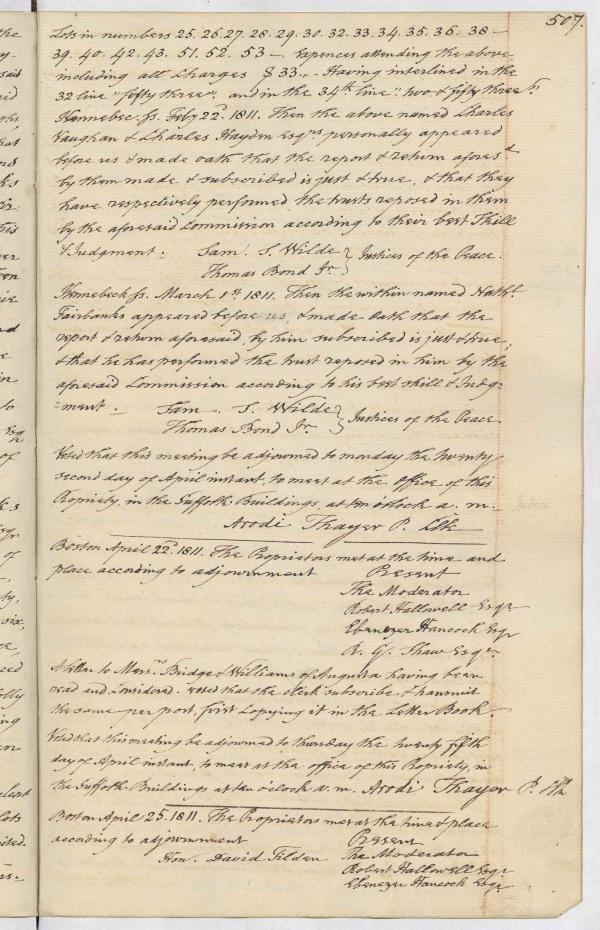 507.
Lots in numbers 25. 26. 27. 28. 29. 30. 32. 33. 34. 35. 36. 38 –
39. 40. 42. 43. 51. 52. 53 — Expences attending the above
including all Charges $33.,, – Having interlined in the
32 line "fifty three", and in the 34th line "two & fifty three"
Kennebec ss. Feby 22d 1811. Then the above named Charles
Vaughan & Charles Hayden Esqrs personally appeared
before us & made oath that the report & return aforesd
by them made & subscribed is just & true, & that they
have respectively performed the trusts reposed in them
by the aforesaid Commission according to their best Skill
& Judgment. Sam. S. Wilde } Justices of the Peace.
Thomas Bond Jr.
Kennebeck ss. March 1st 1811. Then the within named Nathl.
Fairbanks appeared before us, & made Oath that the
report & return aforesaid, by him subscribed is just & true;
& that he has performed the trust reposed in him by the
aforesaid Commission according to his best skill & Judg-
-ment. Sam. S. Wilde } Justices of the Peace.
Thomas Bond Jr.
Voted that this meeting be adjourned to monday the twenty
second day of April instant, to meet at the Office of this
Propriety, in the Suffolk Buildings, at ten o'clock a. m.
Arodi Thayer P. Clk
Boston April 22d. 1811. The Proprietors met at the time and
place according to adjournment Present
The Moderator
Robert Hallowell Esqr
Ebenezer Hancock Esqr
R. G. Shaw Esqr.
A letter to Messrs Bridge & Williams of Augusta having been
read and Considered. voted that the clerk subscribe & transmit
the same per post, first Copying it in the Letter Book.
Voted that this meeting be adjourned to thursday the twenty fifth
day of April instant, to meet at the office of this Propriety, in
the Suffolk Buildings at ten o'clock a. m. Arodi Thayer P. Clk
Boston April 25. 1811. The Proprietors met at the time & place
according to adjournment Present
Hon. David Tilden The Moderator
Robert Hallowell Esqr
Ebenezer Hancock Esqr.